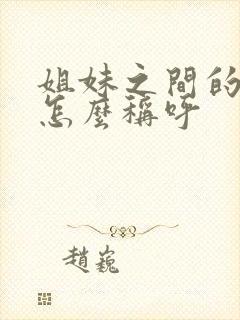 姐妹之間的
怎麼稱呼
趙巍